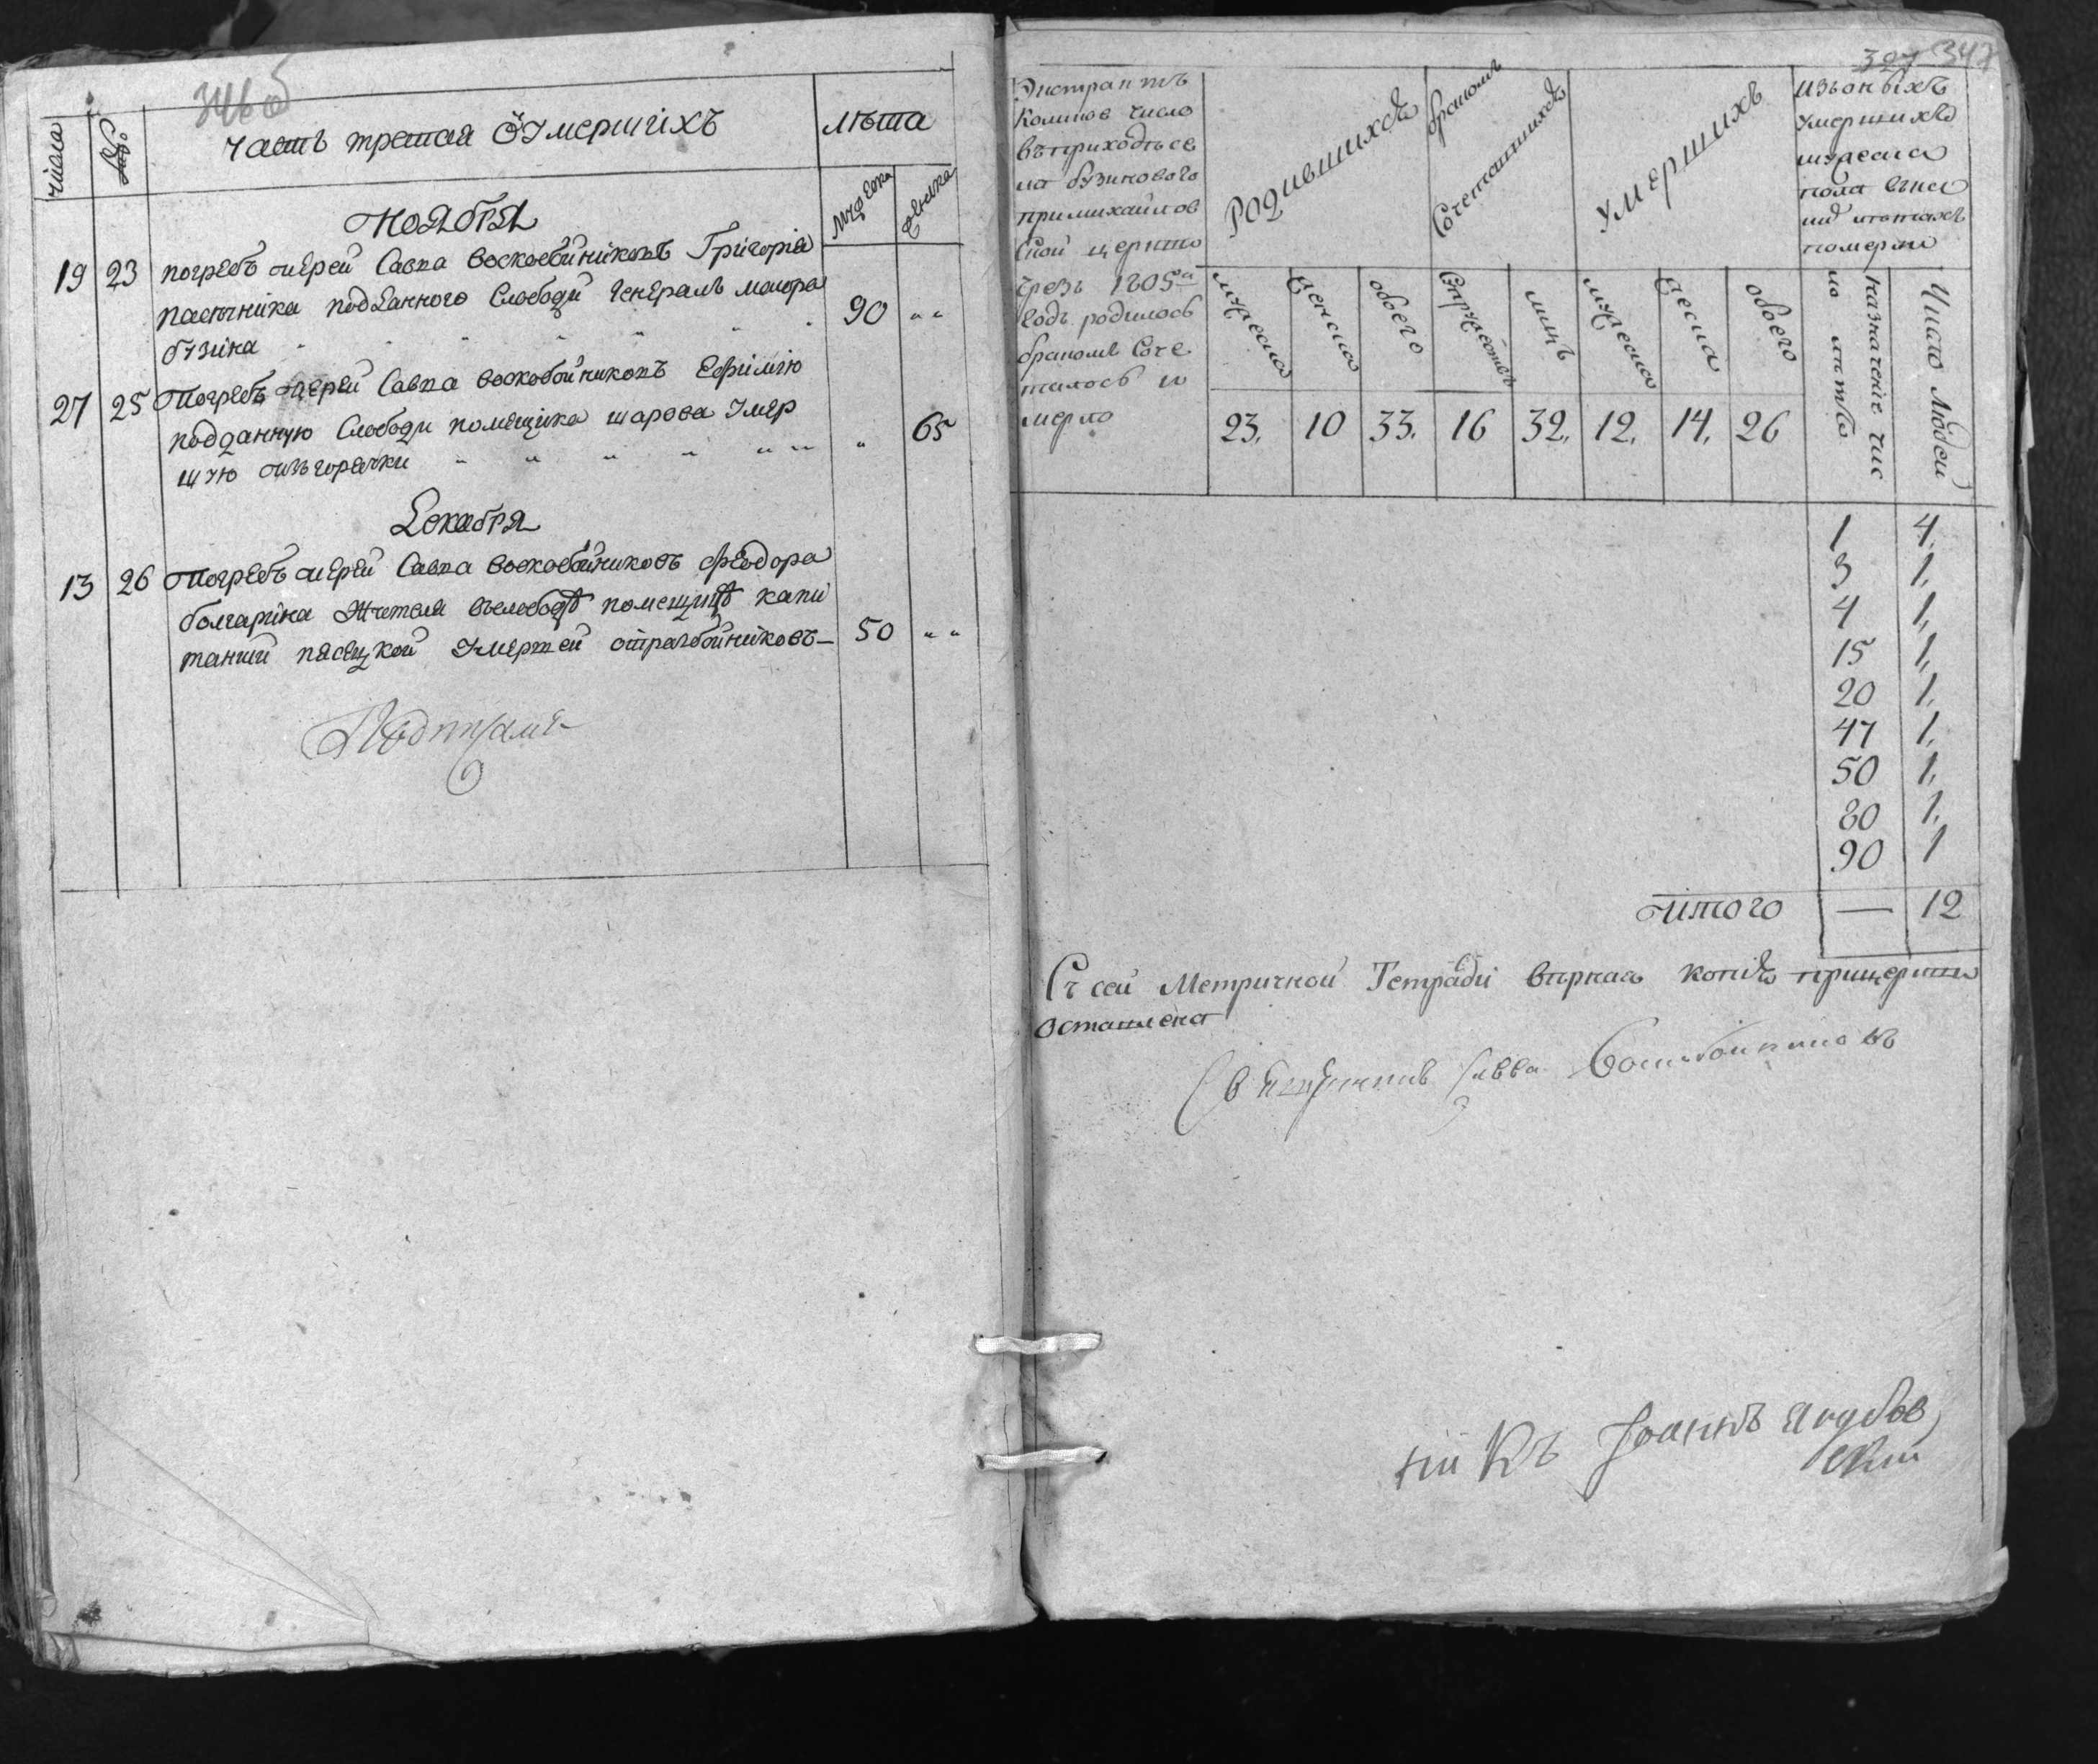 346об
числа
часть третая ѿ Умершихъ
лѣта
мужеска
женска
Ноября
19 23 погребъ иерей Савва воскобойниковъ Григорія
пасечника подданного Слободи генералъ маиора
бузика 90
27 25 Погребъ иерей Савва воскобойниковъ Ефимію
подданную Слободи помещика шарова Умер
шую изъ горячки 65
Декабря
13 26 Погребъ иерей Савва воскобойниковъ Феодора
болгарина Жителя въслободѣ помещицѣ капи
танши Умертей отразбойниковъ 50
327 347
Экстрактъ
Коликое число
въприходѣ се
ла бузиноваго
примихайлов
Ской церкви
чрезъ 1805й
Годъ родилось
бракомъ Соче
талось и
мерло
Родившихся
бракомъ
Сочетавшихся
Умершихъ
изъоныхъ
Умершихъ
мужеска
пола
померли
мужеска
женска
обоего
Супружествъ
лицъ
мужеска
женска
обоего
назначение чис
ло лѣтъ
Число Людей
23. 10 33. 16 32. 12. 14. 26
1 4.
3 1.
4 1.
15 1.
20 1.
47 1.
50 1.
80 1.
90 1
итого — 12
Съ сей Метричной Тетради вѣрная копія прицеркви
Оставлена
Священникъ Савва Воскобойниковъ
Іоаннъ Якубов
ский